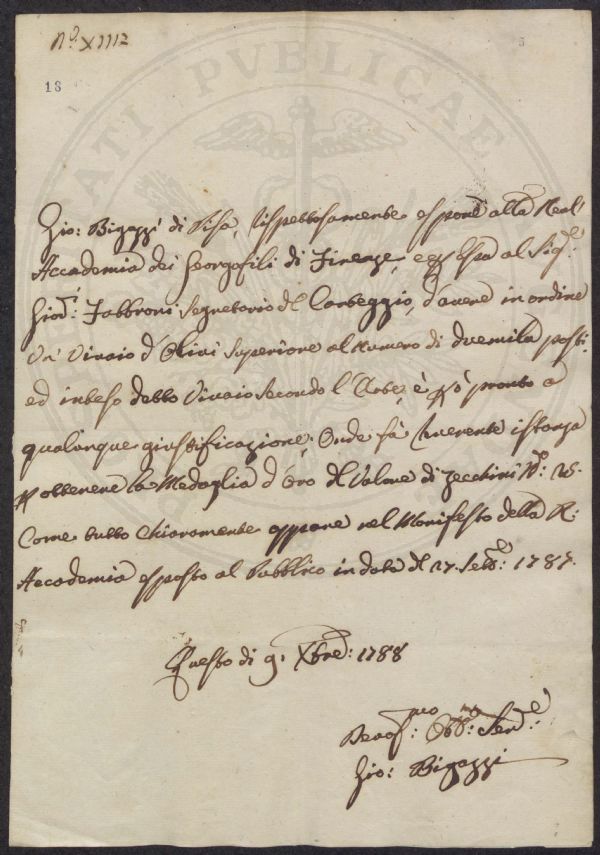 N.º XIIII
5
18
ATI PVBLICAE
Gio: Bigazzi di Pisa, rispettosamente espone alla Real
Accademia dei Georgofili di Firenze, e al Sig.re
Giov: Fabbroni Segretario del Carteggio, d'avere in ordine
Un Vivaio d'Olivi superiore al numero di duemila posti
ed inteso detto Vivaio secondo l'Arte, è però pronto a
qualunque giustificazione; Onde fà reverente istanza
p ottenere la Medaglia d'Oro del Valore di Zecchini N.º
Come tutto chiaramente appare nel Manifesto della R:
Accademia esposto al Pubblico in data del 27. Sett.e: 1787.
Questo dì 9. Xbre: 1788
Devot.mo: Obb.mo: Serv.e:
Gio: Bigazzi